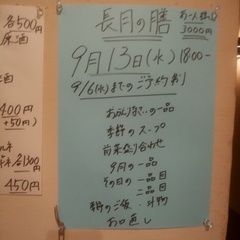 各500円
原酒
酒
400円
+50円)
各1300円
450円
長月の膳
お一人様
3000円
9月13日(水) 18:00-
9/6(水)までのご予約制
季節のスープ
前菜盛り合わせ
9月の一品
その日の一品目
二品目
季節のご飯 汁物
お口直し